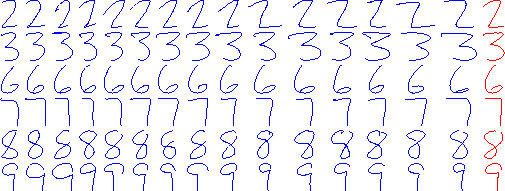 2 2 2 2 2 2 2 2 2 2 2 2 2 2 2 2
3 3 3 3 3 3 3 3 3 3 3 3 3 3 3 3
6 6 6 6 6 6 6 6 6 6 6 6 6 6 6 6
7 7 7 7 7 7 7 7 7 7 7 7 7 7 7 7
8 8 8 8 8 8 8 8 8 8 8 8 8 8 8 8
9 9 9 9 9 9 9 9 9 9 9 9 9 9 9 9